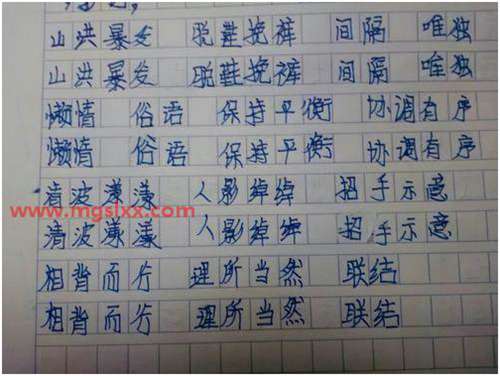 山洪暴发 脱鞋挽裤 间隔 唯独
山洪暴发 脱鞋挽裤 间隔 唯独
懒情 俗语 保持平衡 协调有序
懒情 俗语 保持平衡 协调有序
清波漾漾 人影绰绰 招手示意
www.mgslxx.com
清波漾漾 人影绰绰 招手示意
相背而行 理所当然 联结
相背而行 理所当然 联结